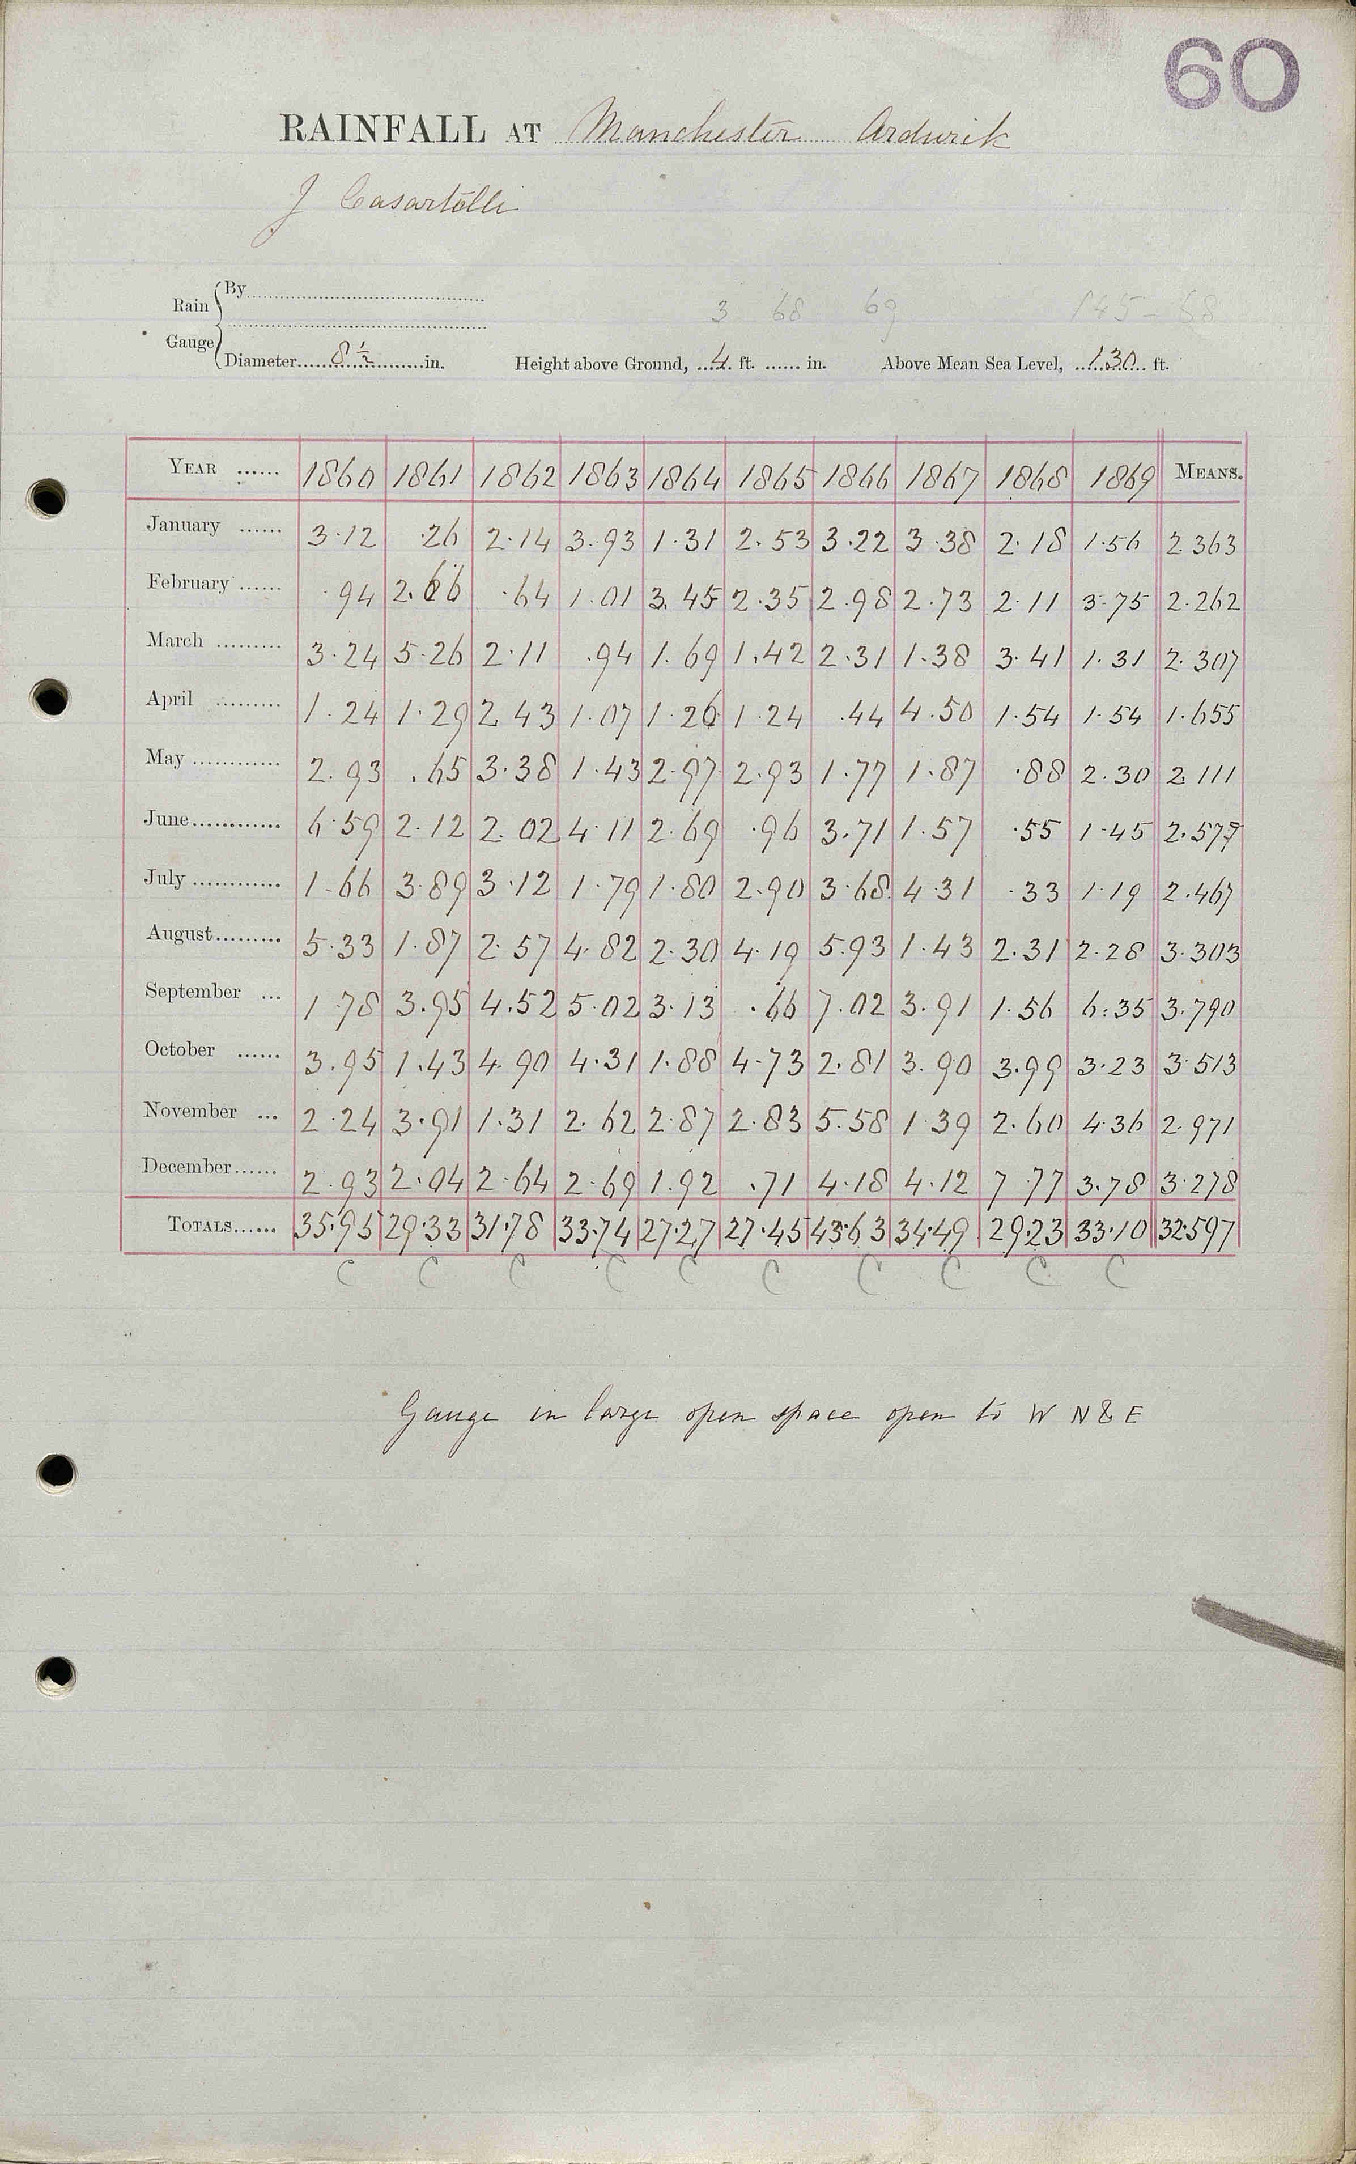 60
RAINFALL AT Manchester Ardwick
J Casartelli
Rain Gauge { By
Diameter 8½ in. Height above Ground, 4 ft. in. Above Mean Sea Level, 130 ft.
3 68 69
YEAR 1860 1861 1862 1863 1864 1865 1866 1867 1868 1869 MEANS.
January 3.12 .26 2.14 3.93 1.31 2.53 3.22 3.38 2.18 1.56 2.363
February .94 2.66 .64 1.01 3.45 2.35 2.98 2.73 2.11 3.75 2.262
March 3.24 5.26 2.11 .94 1.69 1.42 2.31 1.38 3.41 1.31 2.307
April 1.24 1.29 2.43 1.07 1.26 1.24 .44 4.50 1.54 1.54 1.655
May 2.93 .65 3.38 1.43 2.97 2.93 1.77 1.87 .88 2.30 2.111
June 6.59 2.12 2.02 4.11 2.69 .96 3.71 1.57 .55 1.45 2.577
July 1.66 3.89 3.12 1.79 1.80 2.90 3.68 4.31 .33 1.19 2.467
August 5.33 1.87 2.57 4.82 2.30 4.19 5.93 1.43 2.31 2.28 3.303
September 1.78 3.95 4.52 5.02 3.13 .66 7.02 3.91 1.56 6.35 3.790
October 3.95 1.43 4.90 4.31 1.88 4.73 2.81 3.90 3.99 3.23 3.513
November 2.24 3.91 1.31 2.62 2.87 2.83 5.58 1.39 2.60 4.36 2.971
December 2.93 2.04 2.64 2.69 1.92 .71 4.18 4.12 7.77 3.78 3.278
TOTALS 35.95 29.33 31.78 33.74 27.27 27.45 43.63 34.49 29.23 33.10 32.597
C C C C C C C C C C
Gauge in large open space open to W N & E